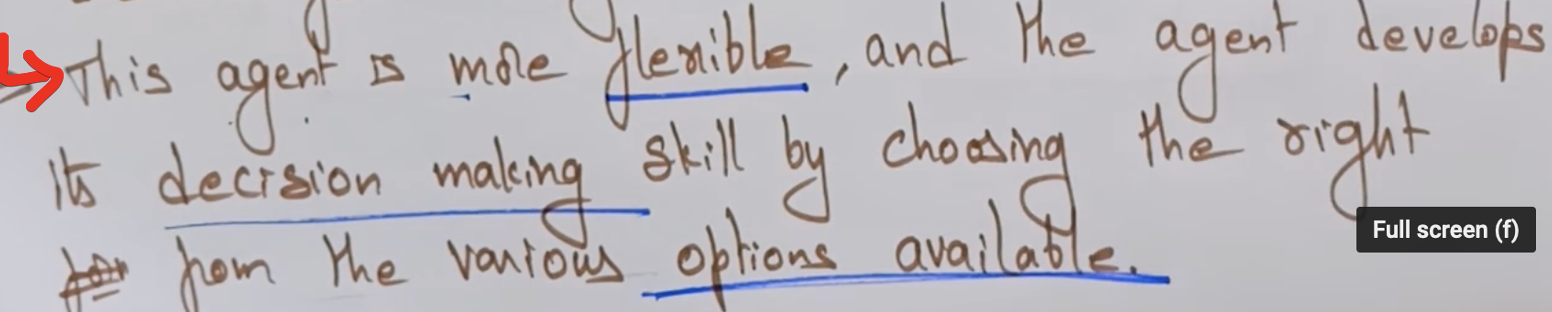 This agent is more flexible, and the agent develops
its decision making skill by choosing the right
Full screen (f)
from the various options available.